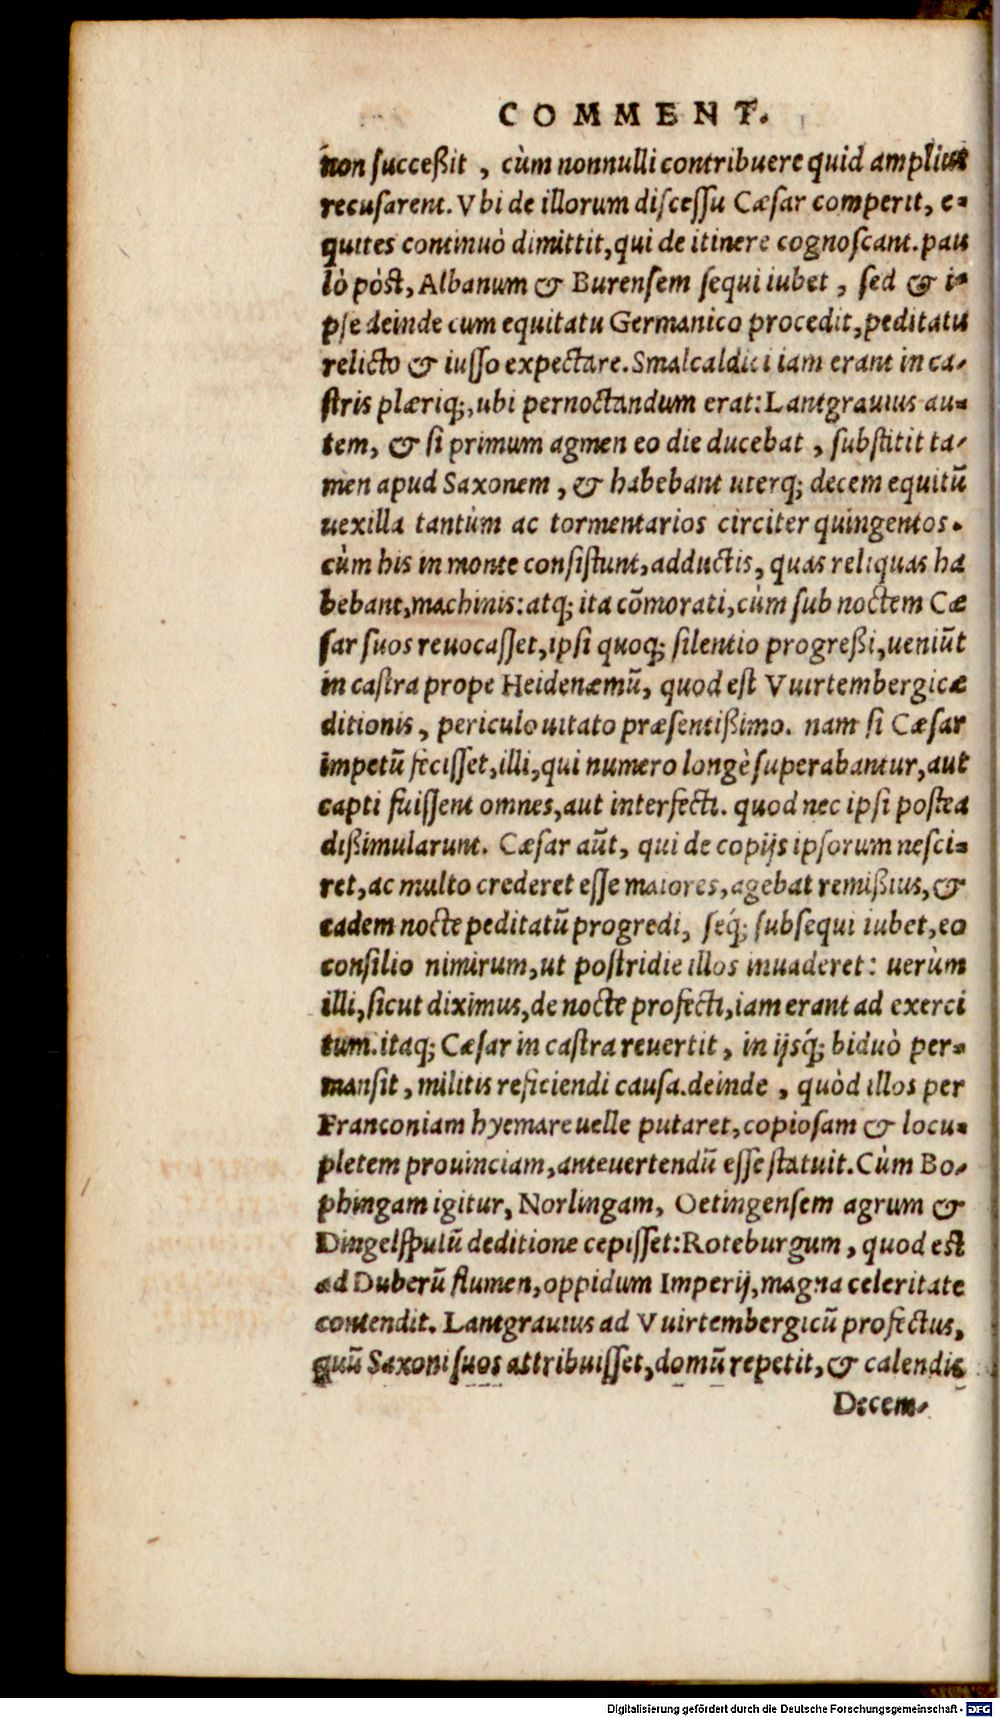 COMMENT.
non succeßit , cùm nonnulli contribuere quid amplius
recusarent. Vbi de illorum discessu Cæsar comperit, e-
quites continuò dimittit, qui de itinere cognoscant. pau
lò pòst, Albanum & Burensem sequi iubet , sed & i-
pse deinde cum equitatu Germanico procedit, peditatu
relicto & iusso expectare. Smalcaldici iam erant in ca-
stris plæriq;, ubi pernoctandum erat: Lantgrauius au-
tem, & si primum agmen eo die ducebat , substitit ta-
men apud Saxonem , & habebant uterq; decem equitū
uexilla tantùm ac tormentarios circiter quingentos.
cùm his in monte consistunt, adductis, quas reliquas ha
bebant, machinis: atq; ita cōmorati, cùm sub noctem Cæ
sar suos reuocasset, ipsi quoq; silentio progreßi, ueniūt
in castra prope Heidenæmū, quod est Vuirtembergicæ
ditionis , periculo uitato præsentißimo. nam si Cæsar
impetū fecisset, illi, qui numero longè superabantur, aut
capti fuissent omnes, aut interfecti. quod nec ipsi postea
dißimularunt. Cæsar aūt, qui de copijs ipsorum nesci-
ret, ac multo crederet esse maiores, agebat remißius, &
eadem nocte peditatū progredi, seq́; subsequi iubet, eo
consilio nimirum, ut postridie illos inuaderet: uerùm
illi, sicut diximus, de nocte profecti, iam erant ad exerci
tum. itaq; Cæsar in castra reuertit , in ijsq́; biduò per-
mansit , militis reficiendi causa. deinde , quòd illos per
Franconiam hyemare uelle putaret, copiosam & locu-
pletem prouinciam, anteuertendū esse statuit. Cùm Bo-
phingam igitur, Norlingam, Oetingensem agrum &
Dingelspulū deditione cepisset: Roteburgum , quod est
ad Duberū flumen, oppidum Imperij, magna celeritate
contendit. Lantgrauius ad Vuirtembergicū profectus,
quū Saxoni suos attribuisset, domū repetit, & calendis
Decem-
Digitalisierung gefördert durch die Deutsche Forschungsgemeinschaft - DFG